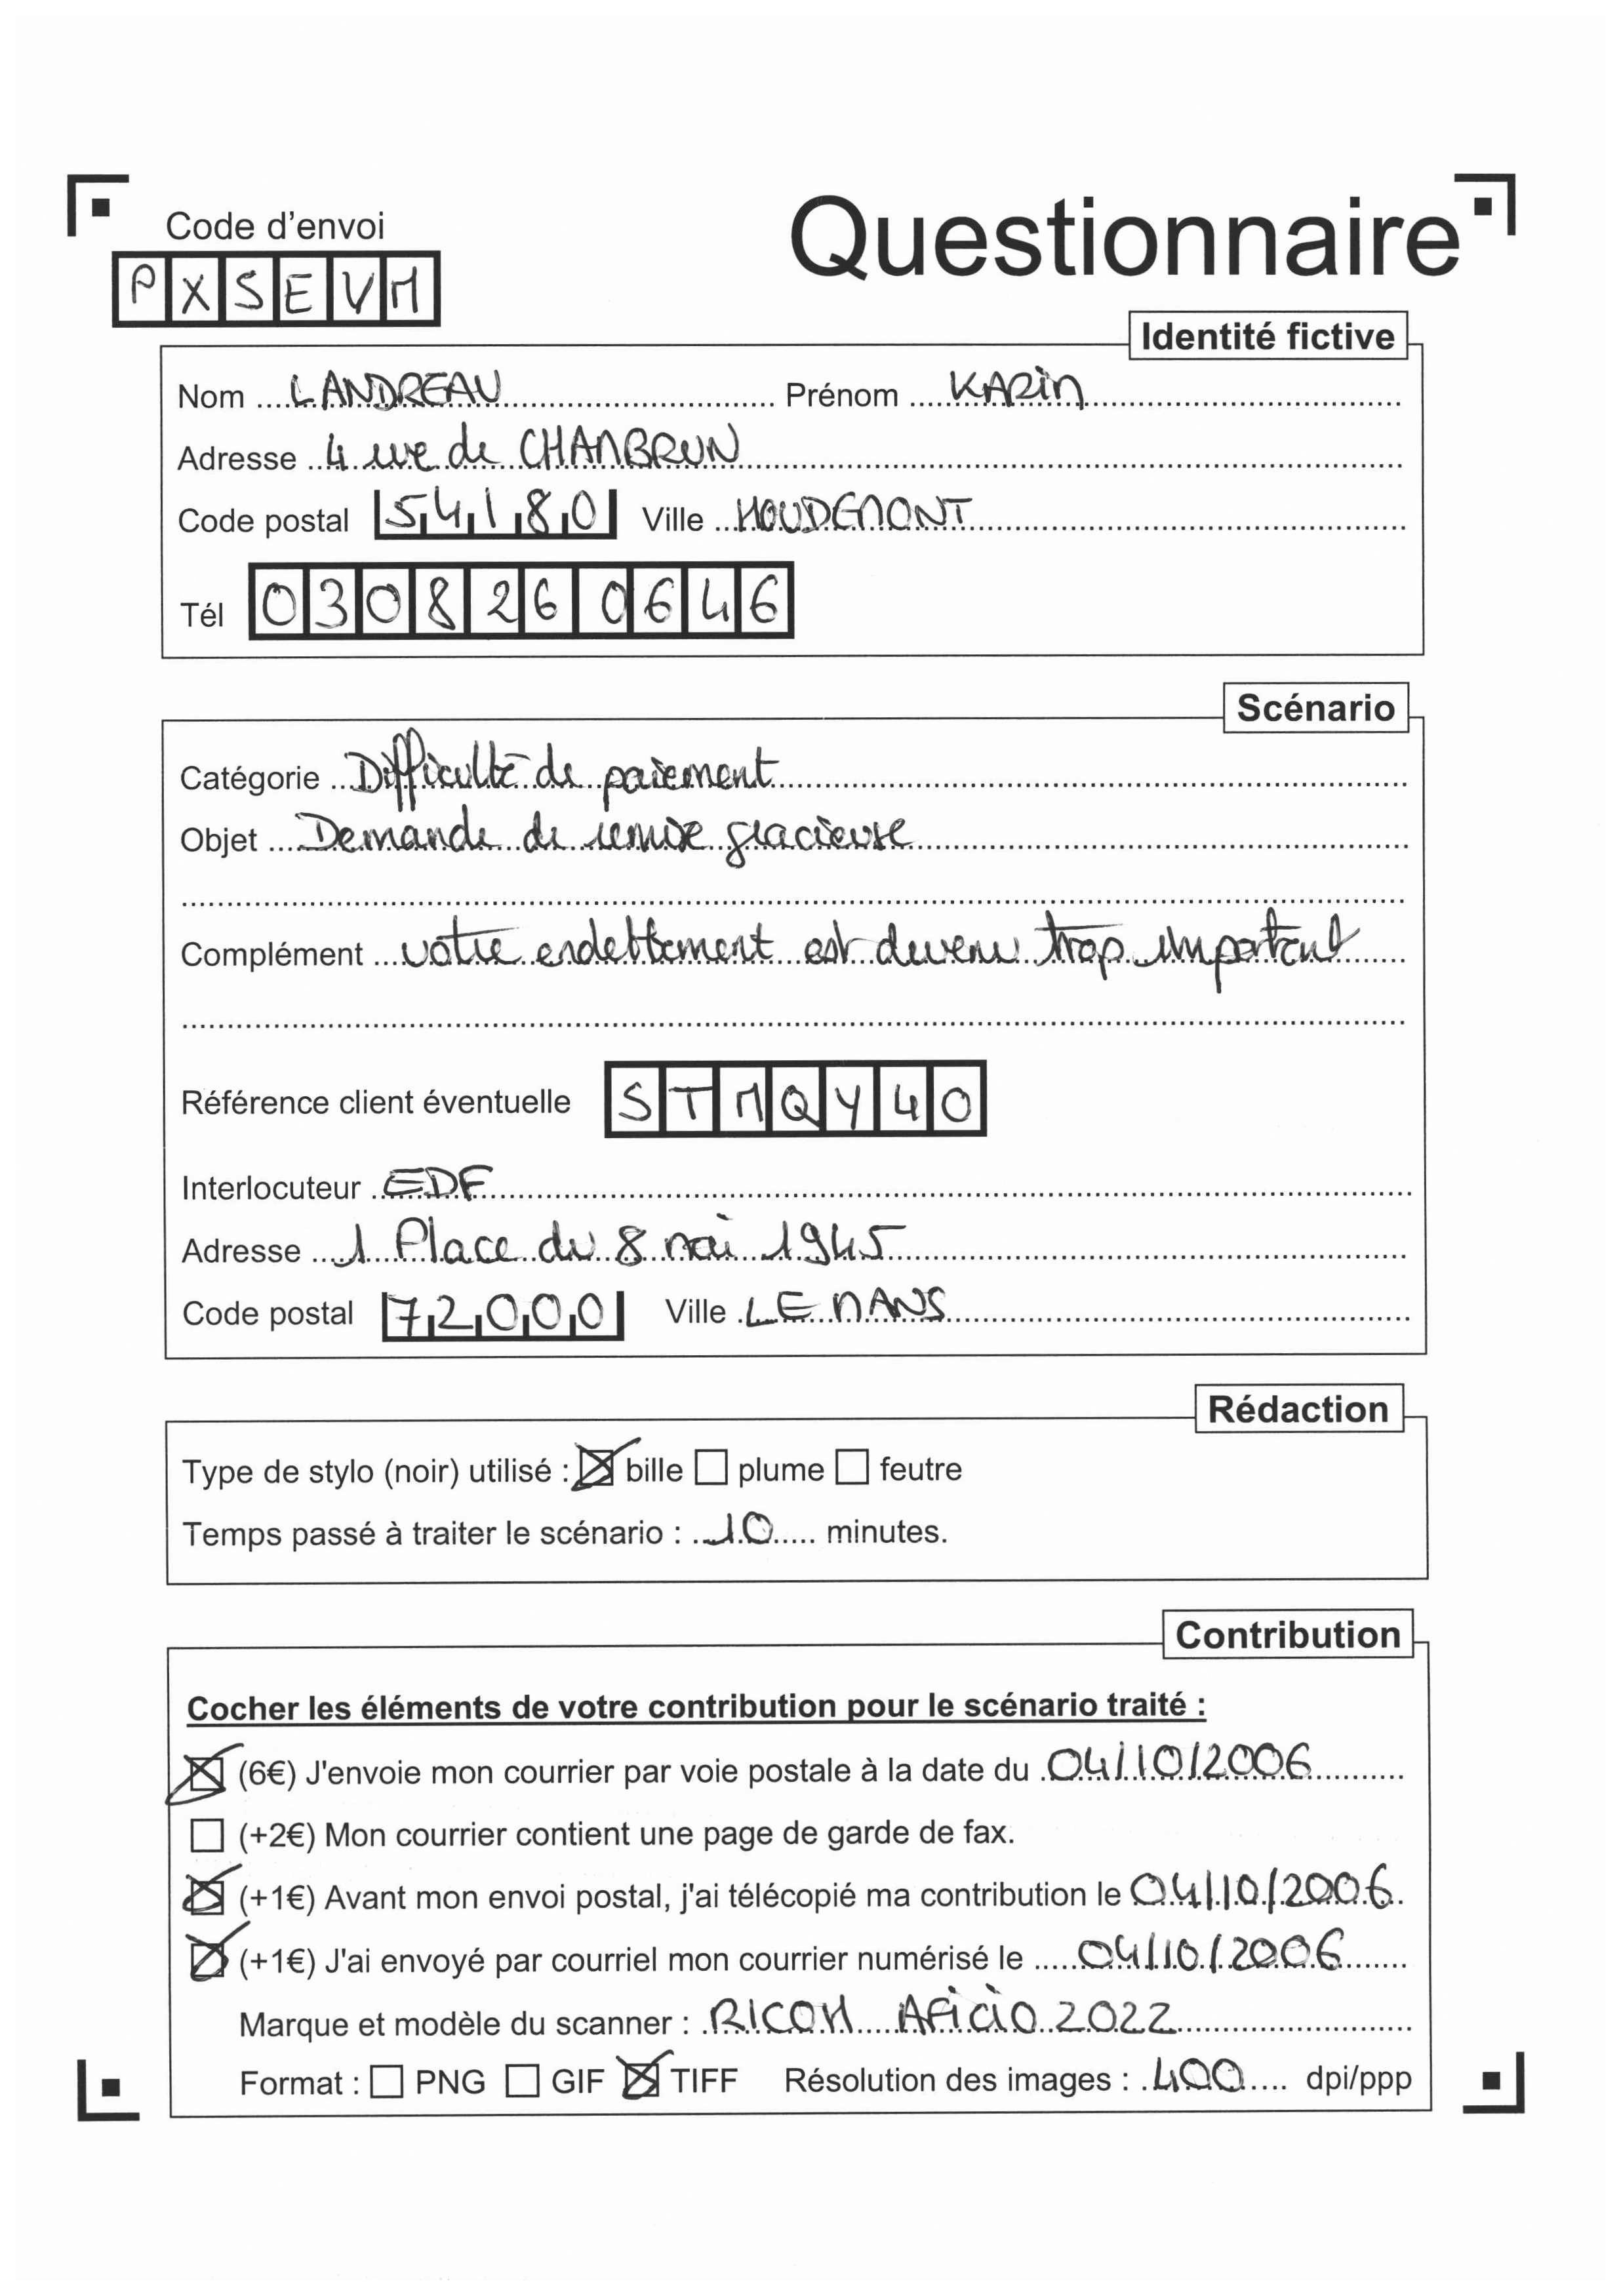 Code d'envoi
Questionnaire
PXSEVM
Identité fictive
Nom LANDREAU Prénom KARin
Adresse 4 rue de CHAMBRUN
Code postal 54180 Ville HOUDEMONT
Tél 0308260646
Scénario
Catégorie Difficulté de paiement
Objet Demande de remise gracieuse
Complément votre endettement est devenu trop important
Référence client éventuelle STMQY40
Interlocuteur EDF
Adresse 1 Place du 8 mai 1945
Code postal 72000 Ville LE MANS
Rédaction
Type de stylo (noir) utilisé : ☒ bille ☐ plume ☐ feutre
Temps passé à traiter le scénario : 10 minutes.
Contribution
Cocher les éléments de votre contribution pour le scénario traité :
☒ (6€) J'envoie mon courrier par voie postale à la date du 04/10/2006
☐ (+2€) Mon courrier contient une page de garde de fax.
☒ (+1€) Avant mon envoi postal, j'ai télécopié ma contribution le 04/10/2006
☒ (+1€) J'ai envoyé par courriel mon courrier numérisé le 04/10/2006
Marque et modèle du scanner : RICOH AFiciO 2022
Format : ☐ PNG ☐ GIF ☒ TIFF Résolution des images : 400 dpi/ppp